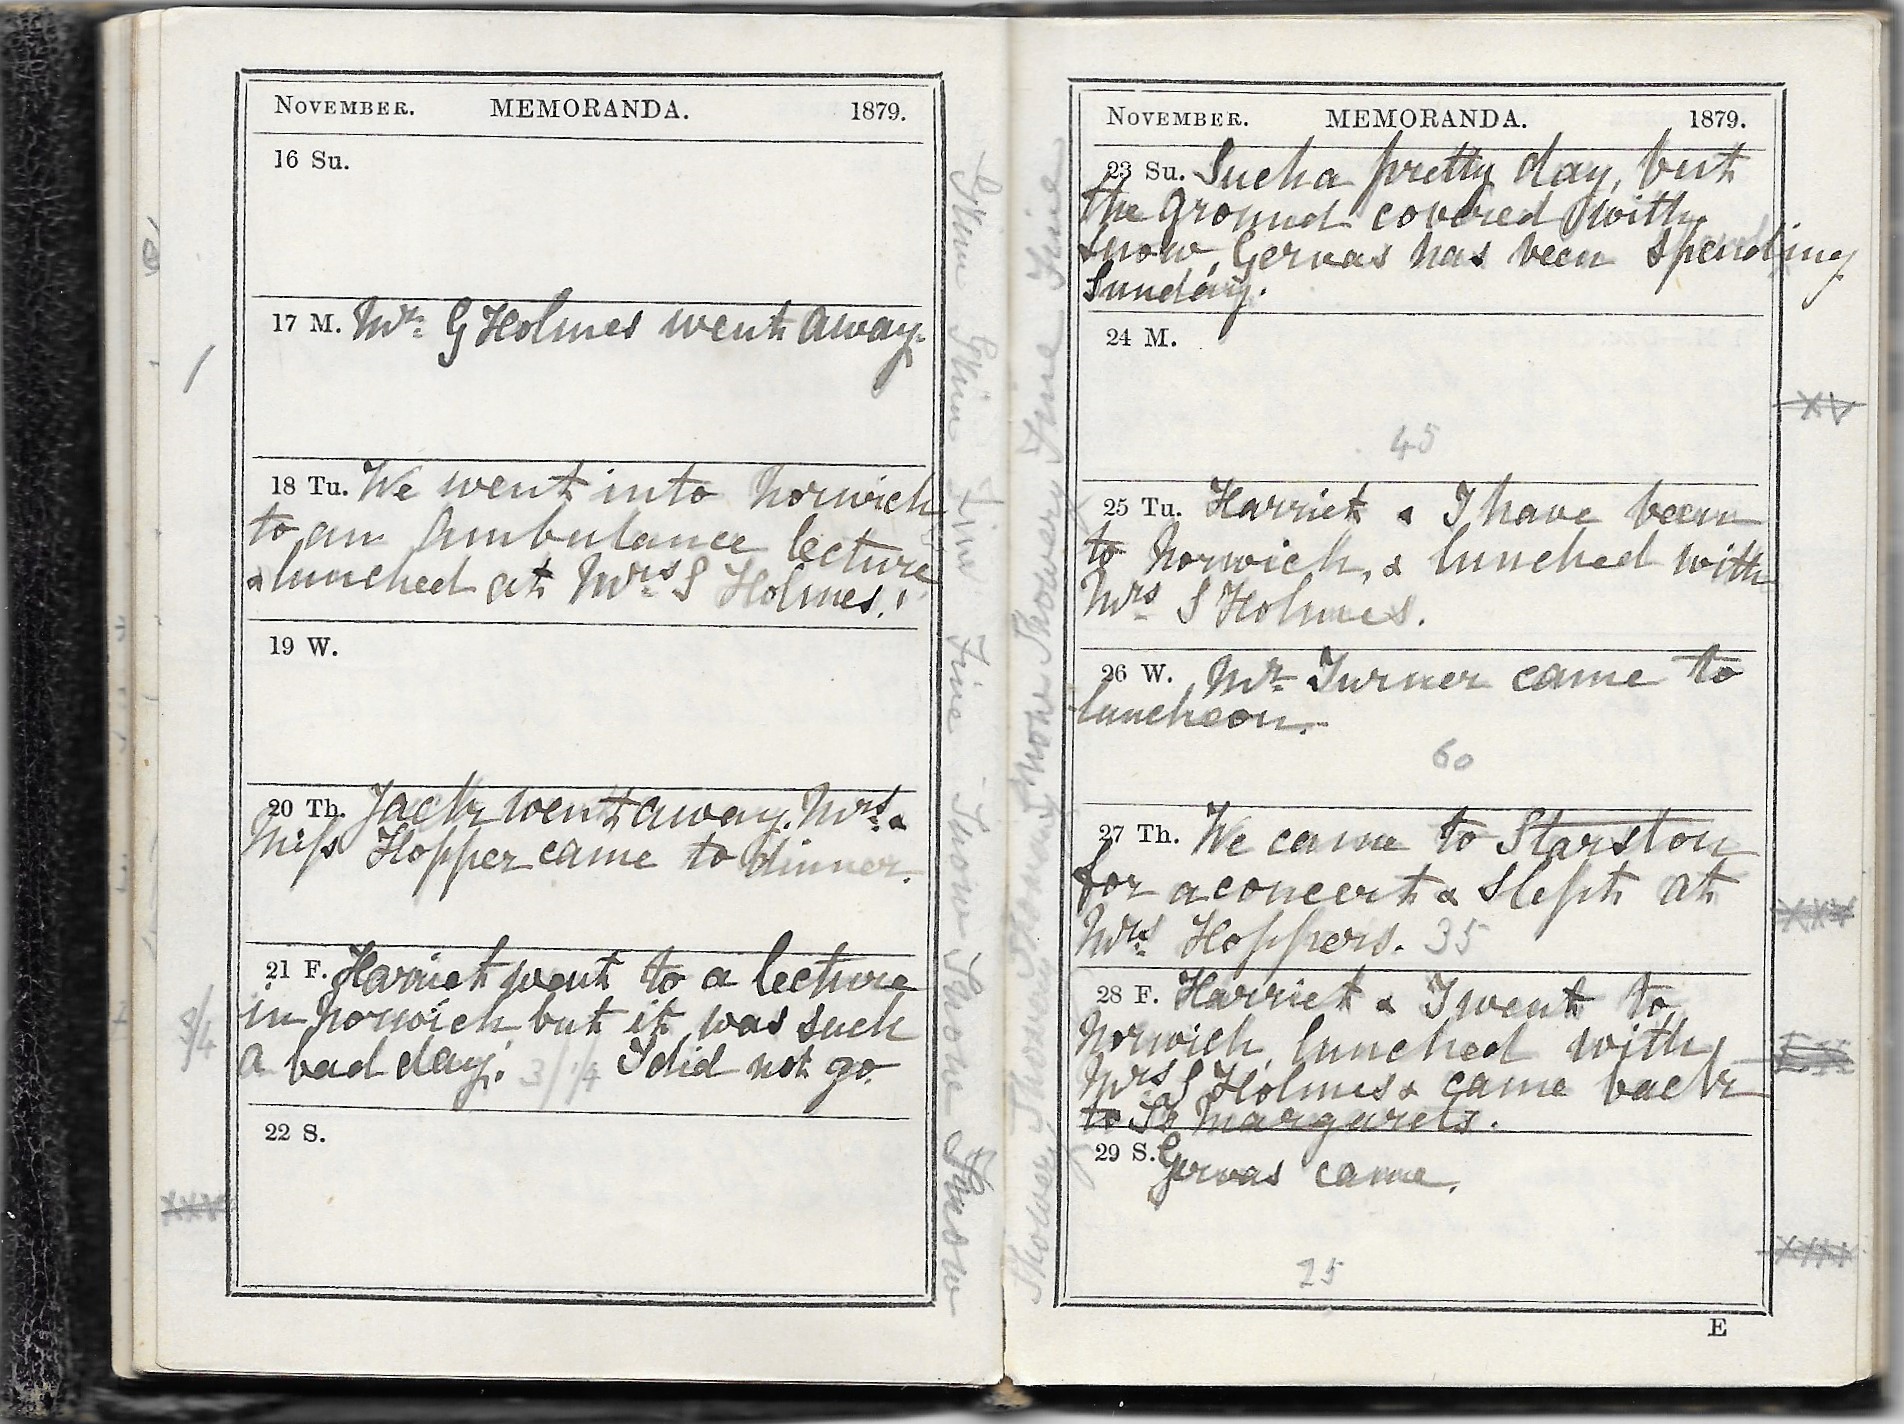 NOVEMBER. MEMORANDA. 1879.
16 Su.
17 M. Mr. G Holmes went away.
18 Tu. We went into Norwich
to an Ambulance lecture
& lunched at Mrs. S Holmes.
19 W.
20 Th. Jack went away. Mrs. &
Miss Hopper came to dinner.
21 F. Harriet went to a lecture
in Norwich but it was such
a bad day. 3/1/4 I did not go.
22 S.
Fine Fine Snow Snow Snow
NOVEMBER. MEMORANDA. 1879.
23 Su. Such a pretty day, but
the ground covered with
snow, Gervas has been spending
Sunday.
24 M.
45
25 Tu. Harriet & I have been
to Norwich, & lunched with
Mrs. S Holmes.
26 W. Mr. Turner came to
luncheon.
60
27 Th. We came to Starston
for a concert & slept at
Mrs. Hoppers. 35
28 F. Harriet & I went to
Norwich, lunched with
Mrs S Holmes & came back
to St Margarets.
29 S. Gervas came.
25
Showery Snow Showery Fine Fine
XV
XXV
E